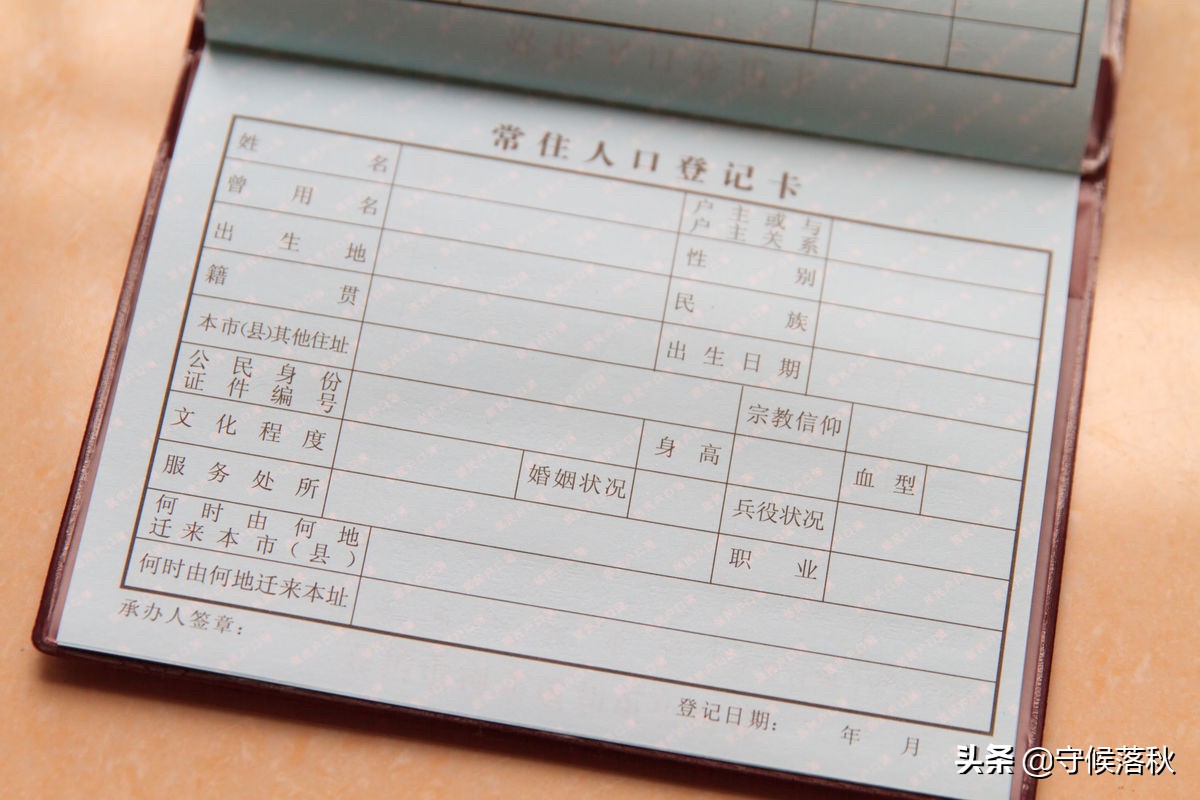 常住人口登记卡
姓名
户主或与
户主关系
曾用名
性别
出生地
民族
籍贯
出生日期
本市(县)其他住址
宗教信仰
公民身份
证件编号
身高
血型
文化程度
婚姻状况
兵役状况
服务处所
职业
何时由何地
迁来本市(县)
何时由何地迁来本址
承办人签章:
登记日期: 年 月
头条 @守候落秋